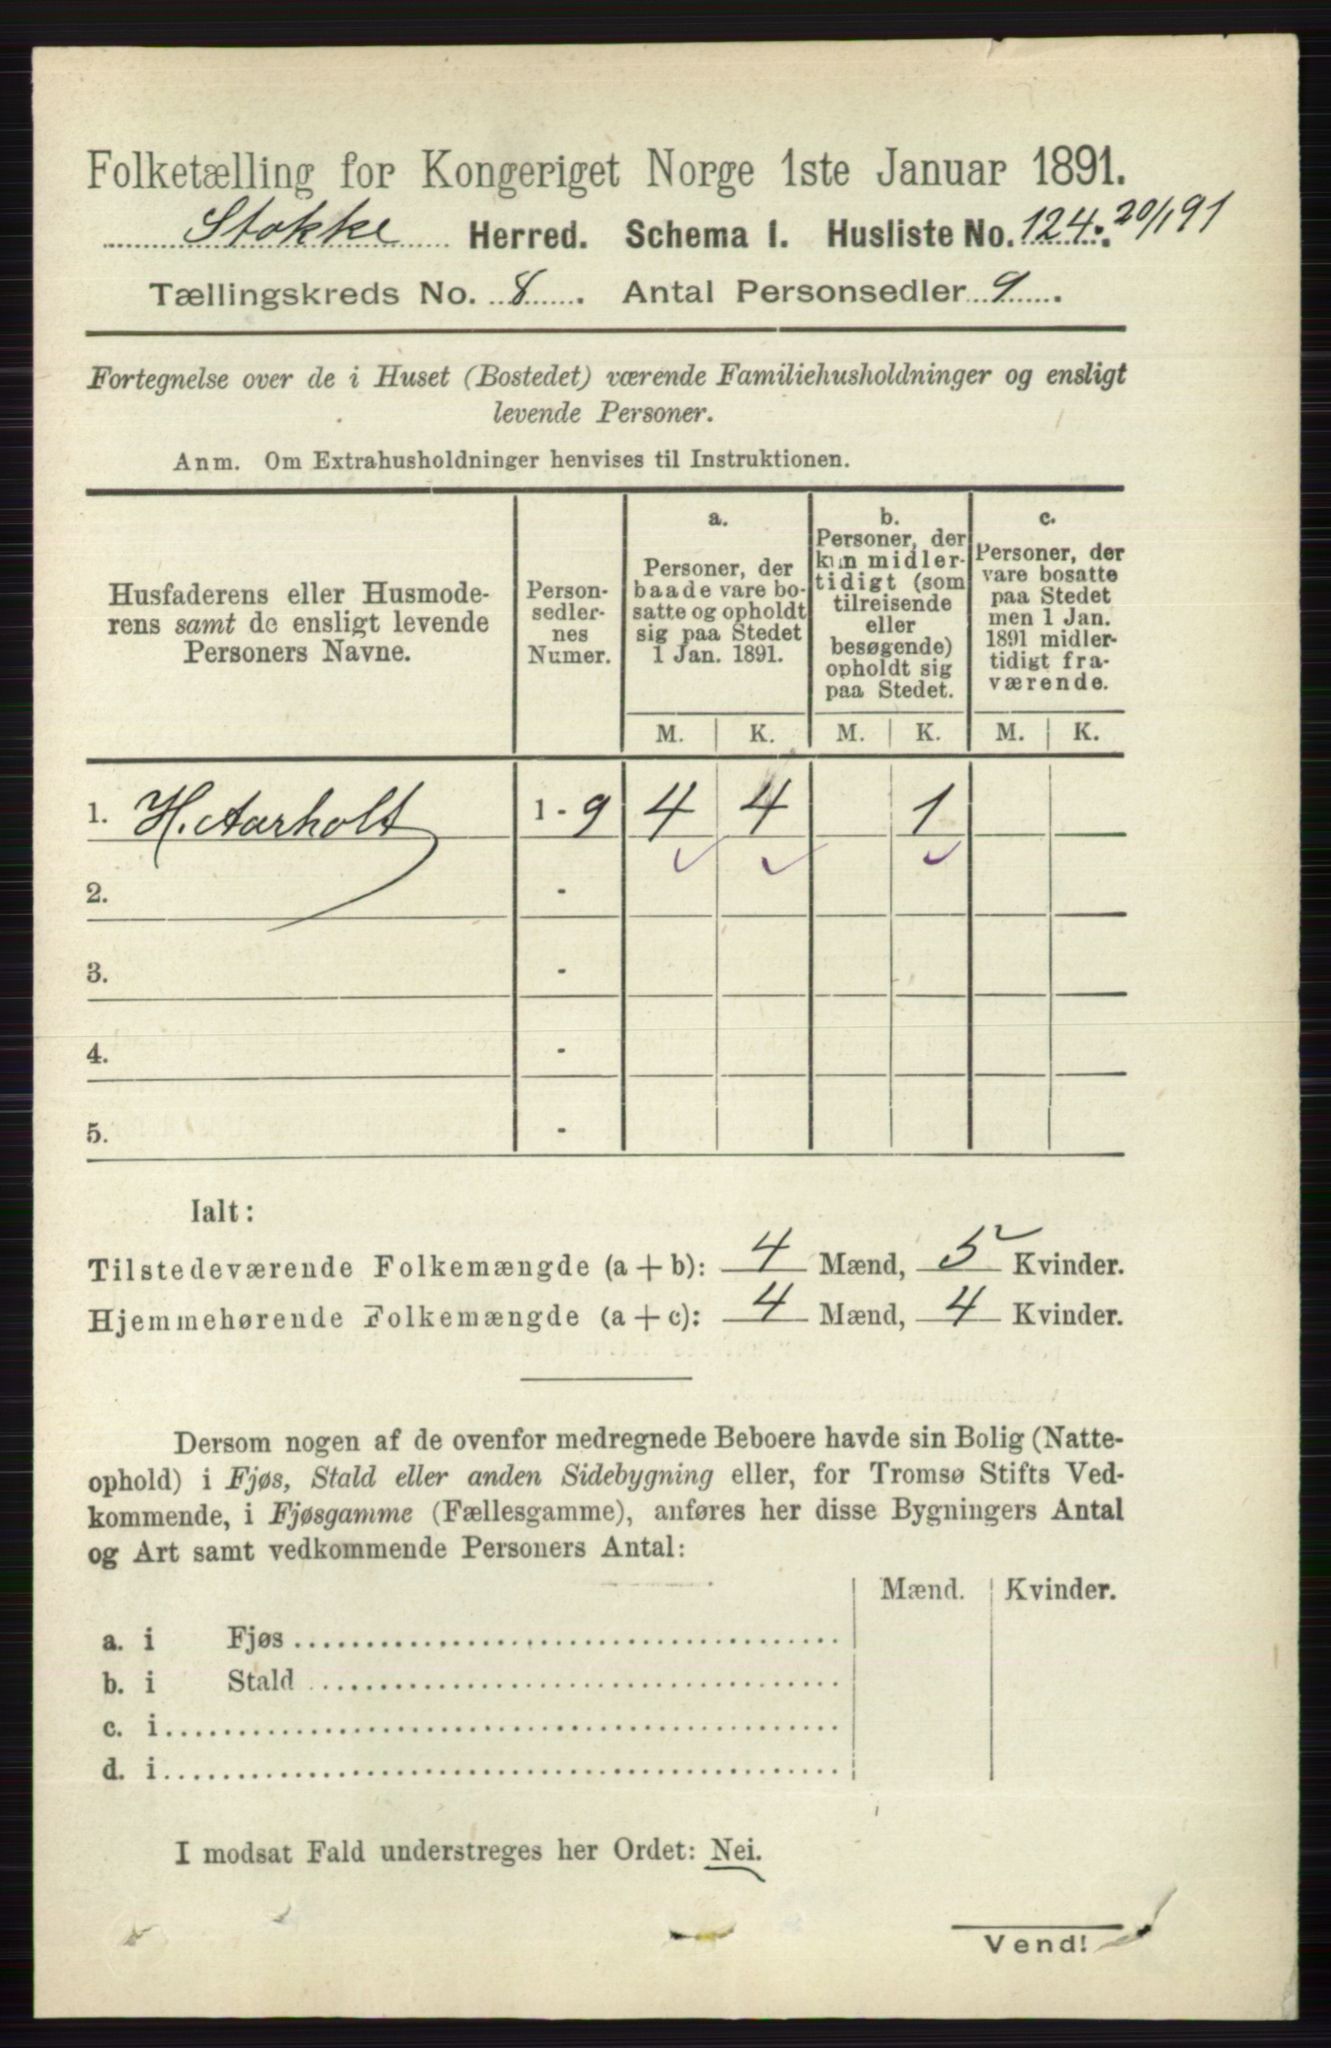 Folketælling for Kongeriget Norge 1ste Januar 1891.
Stokke Herred. Schema I. Husliste No. 124. 20/1 91
Tællingskreds No. 8. Antal Personsedler 9.
Fortegnelse over de i Huset (Bostedet) værende Familiehusholdninger og ensligt
levende Personer.
Anm. Om Extrahusholdninger henvises til Instruktionen.
Husfaderens eller Husmode-
rens samt de ensligt levende
Personers Navne.
Person-
sedler-
nes
Numer.
a.
Personer, der
baade vare bo-
satte og opholdt
sig paa Stedet
1 Jan. 1891.
b.
Personer, der
kun midler-
tidigt (som
tilreisende
eller
besøgende)
opholdt sig
paa Stedet.
c.
Personer, der
vare bosatte
paa Stedet
men 1 Jan.
1891 midler-
tidigt fra-
værende.
M. K. M. K. M. K.
1. H. Aarholt 1 - 9 4 4 1
2. -
3. -
4. -
5. -
Ialt:
Tilstedeværende Folkemængde (a + b): 4 Mænd, 5 Kvinder.
Hjemmehørende Folkemængde (a + c): 4 Mænd, 4 Kvinder.
Dersom nogen af de ovenfor medregnede Beboere havde sin Bolig (Natte-
ophold) i Fjøs, Stald eller anden Sidebygning eller, for Tromsø Stifts Ved-
kommende, i Fjøsgamme (Fællesgamme), anføres her disse Bygningers Antal
og Art samt vedkommende Personers Antal:
Mænd. Kvinder.
a. i Fjøs
b. i Stald
c. i
d. i
I modsat Fald understreges her Ordet: Nei.
Vend!